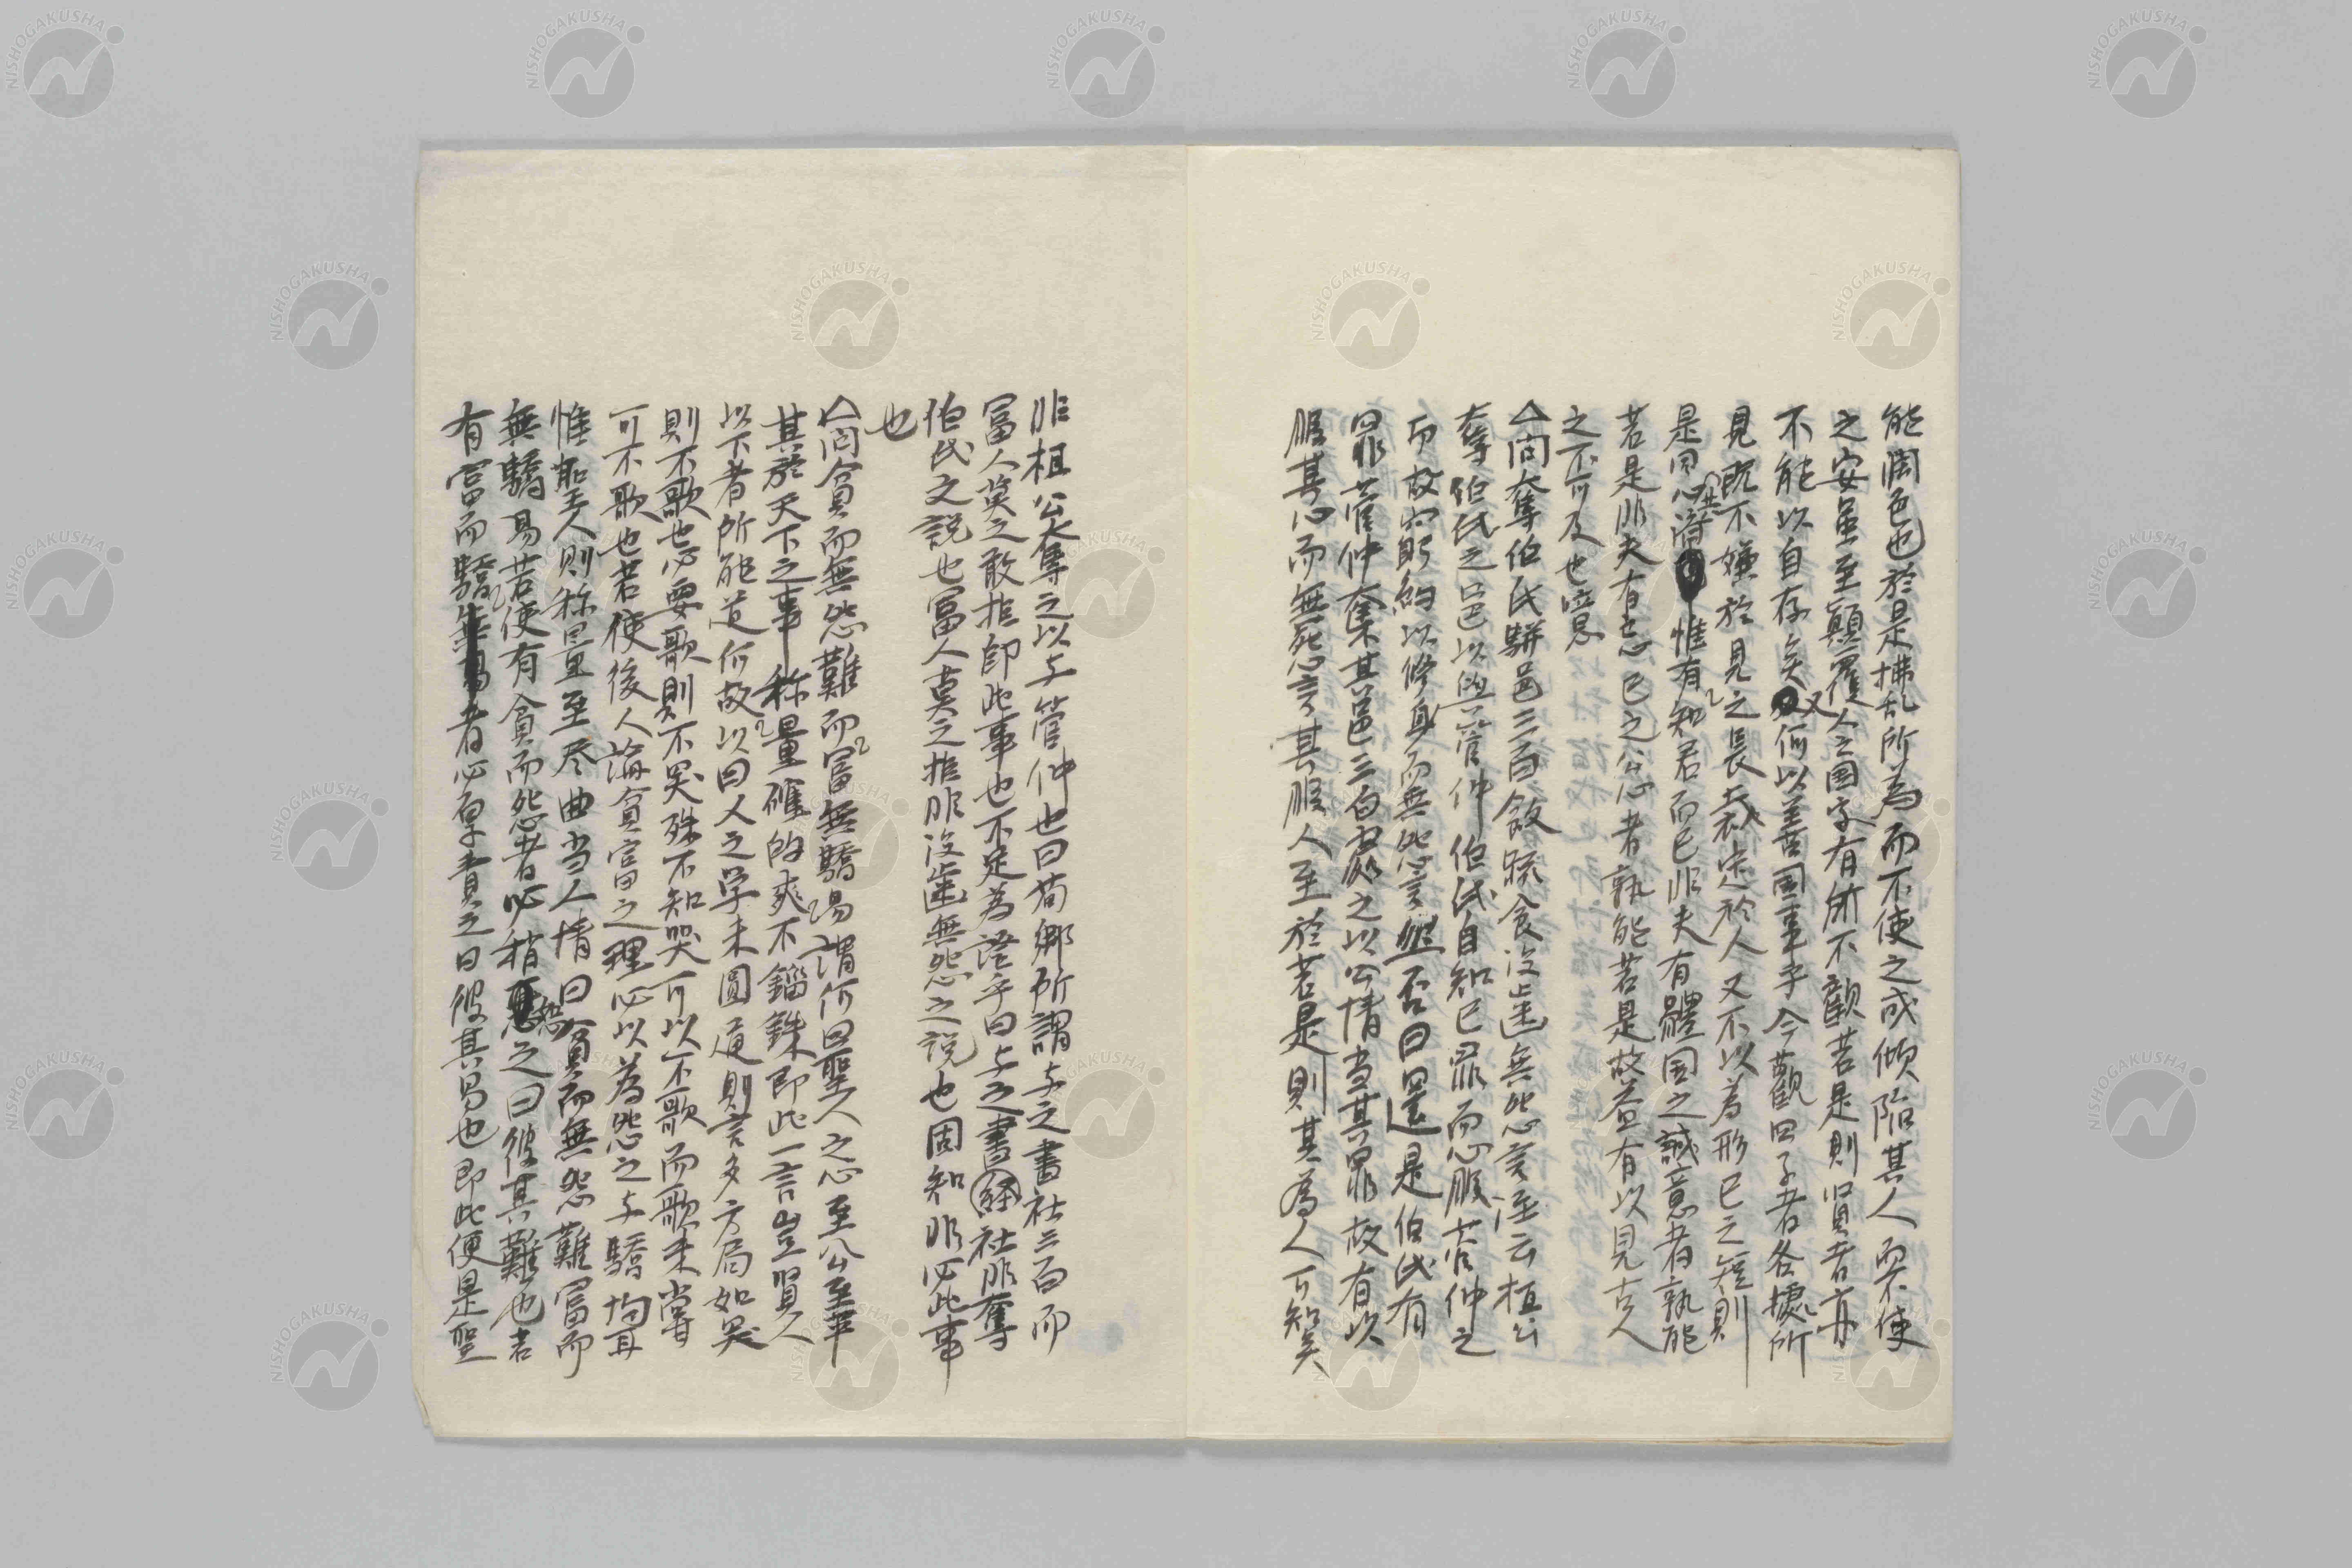 能潤色也於是拂乱所為而不使之成傾陥其人而不使
之安虽至顛覆人之国家有所不顧若是則賢者亦
不能以自存矣又何以善国事乎今觀四子者各攄所
見既不嫌於見之長裁定於人又不以為形己之短則
是同心共済惟有知君而已非夫有體国之誠意者孰能
若是非夫有忘己之公心者孰能若是故盖有以見古人
之不可及也噫
△問奪伯氏駢邑三百飯蔬食没歯無怨言註云桓公
奪伯氏之邑以與管仲伯氏自知己罪而心服管仲之
功故窮約以終身而無怨言然否曰還是伯氏有
罪管仲奪其邑三百處之以公情当其罪故有以
服其心而無怨言其服人至於若是則其為人可知矣
非桓公奪之以与管仲也曰荀卿所謂与之書社三百而
富人莫之敢拒即此事也不足為證乎曰与之書社非奪
伯氏之説也富人莫之拒非没歯無怨之説也固知非必此事
也
△問貧而無怨難而富無驕易謂何曰聖人之心至公至平
其於天下之事称量確的爽不錙銖即此一言豈賢人
以下者所能道何故以曰人之学未圓通則言多方局如哭
則不歌也必要歌則不哭殊不知哭可以不歌而歌未嘗
可不歌也若使後人論貧富之理必以為怨之与驕均耳
惟聖人則称量至尽曲当人情曰貧而無怨難富而
無驕易若使有貧而怨者必稍恕之曰彼其難也若
有富而驕者必厚責之曰彼其易也即此便是聖